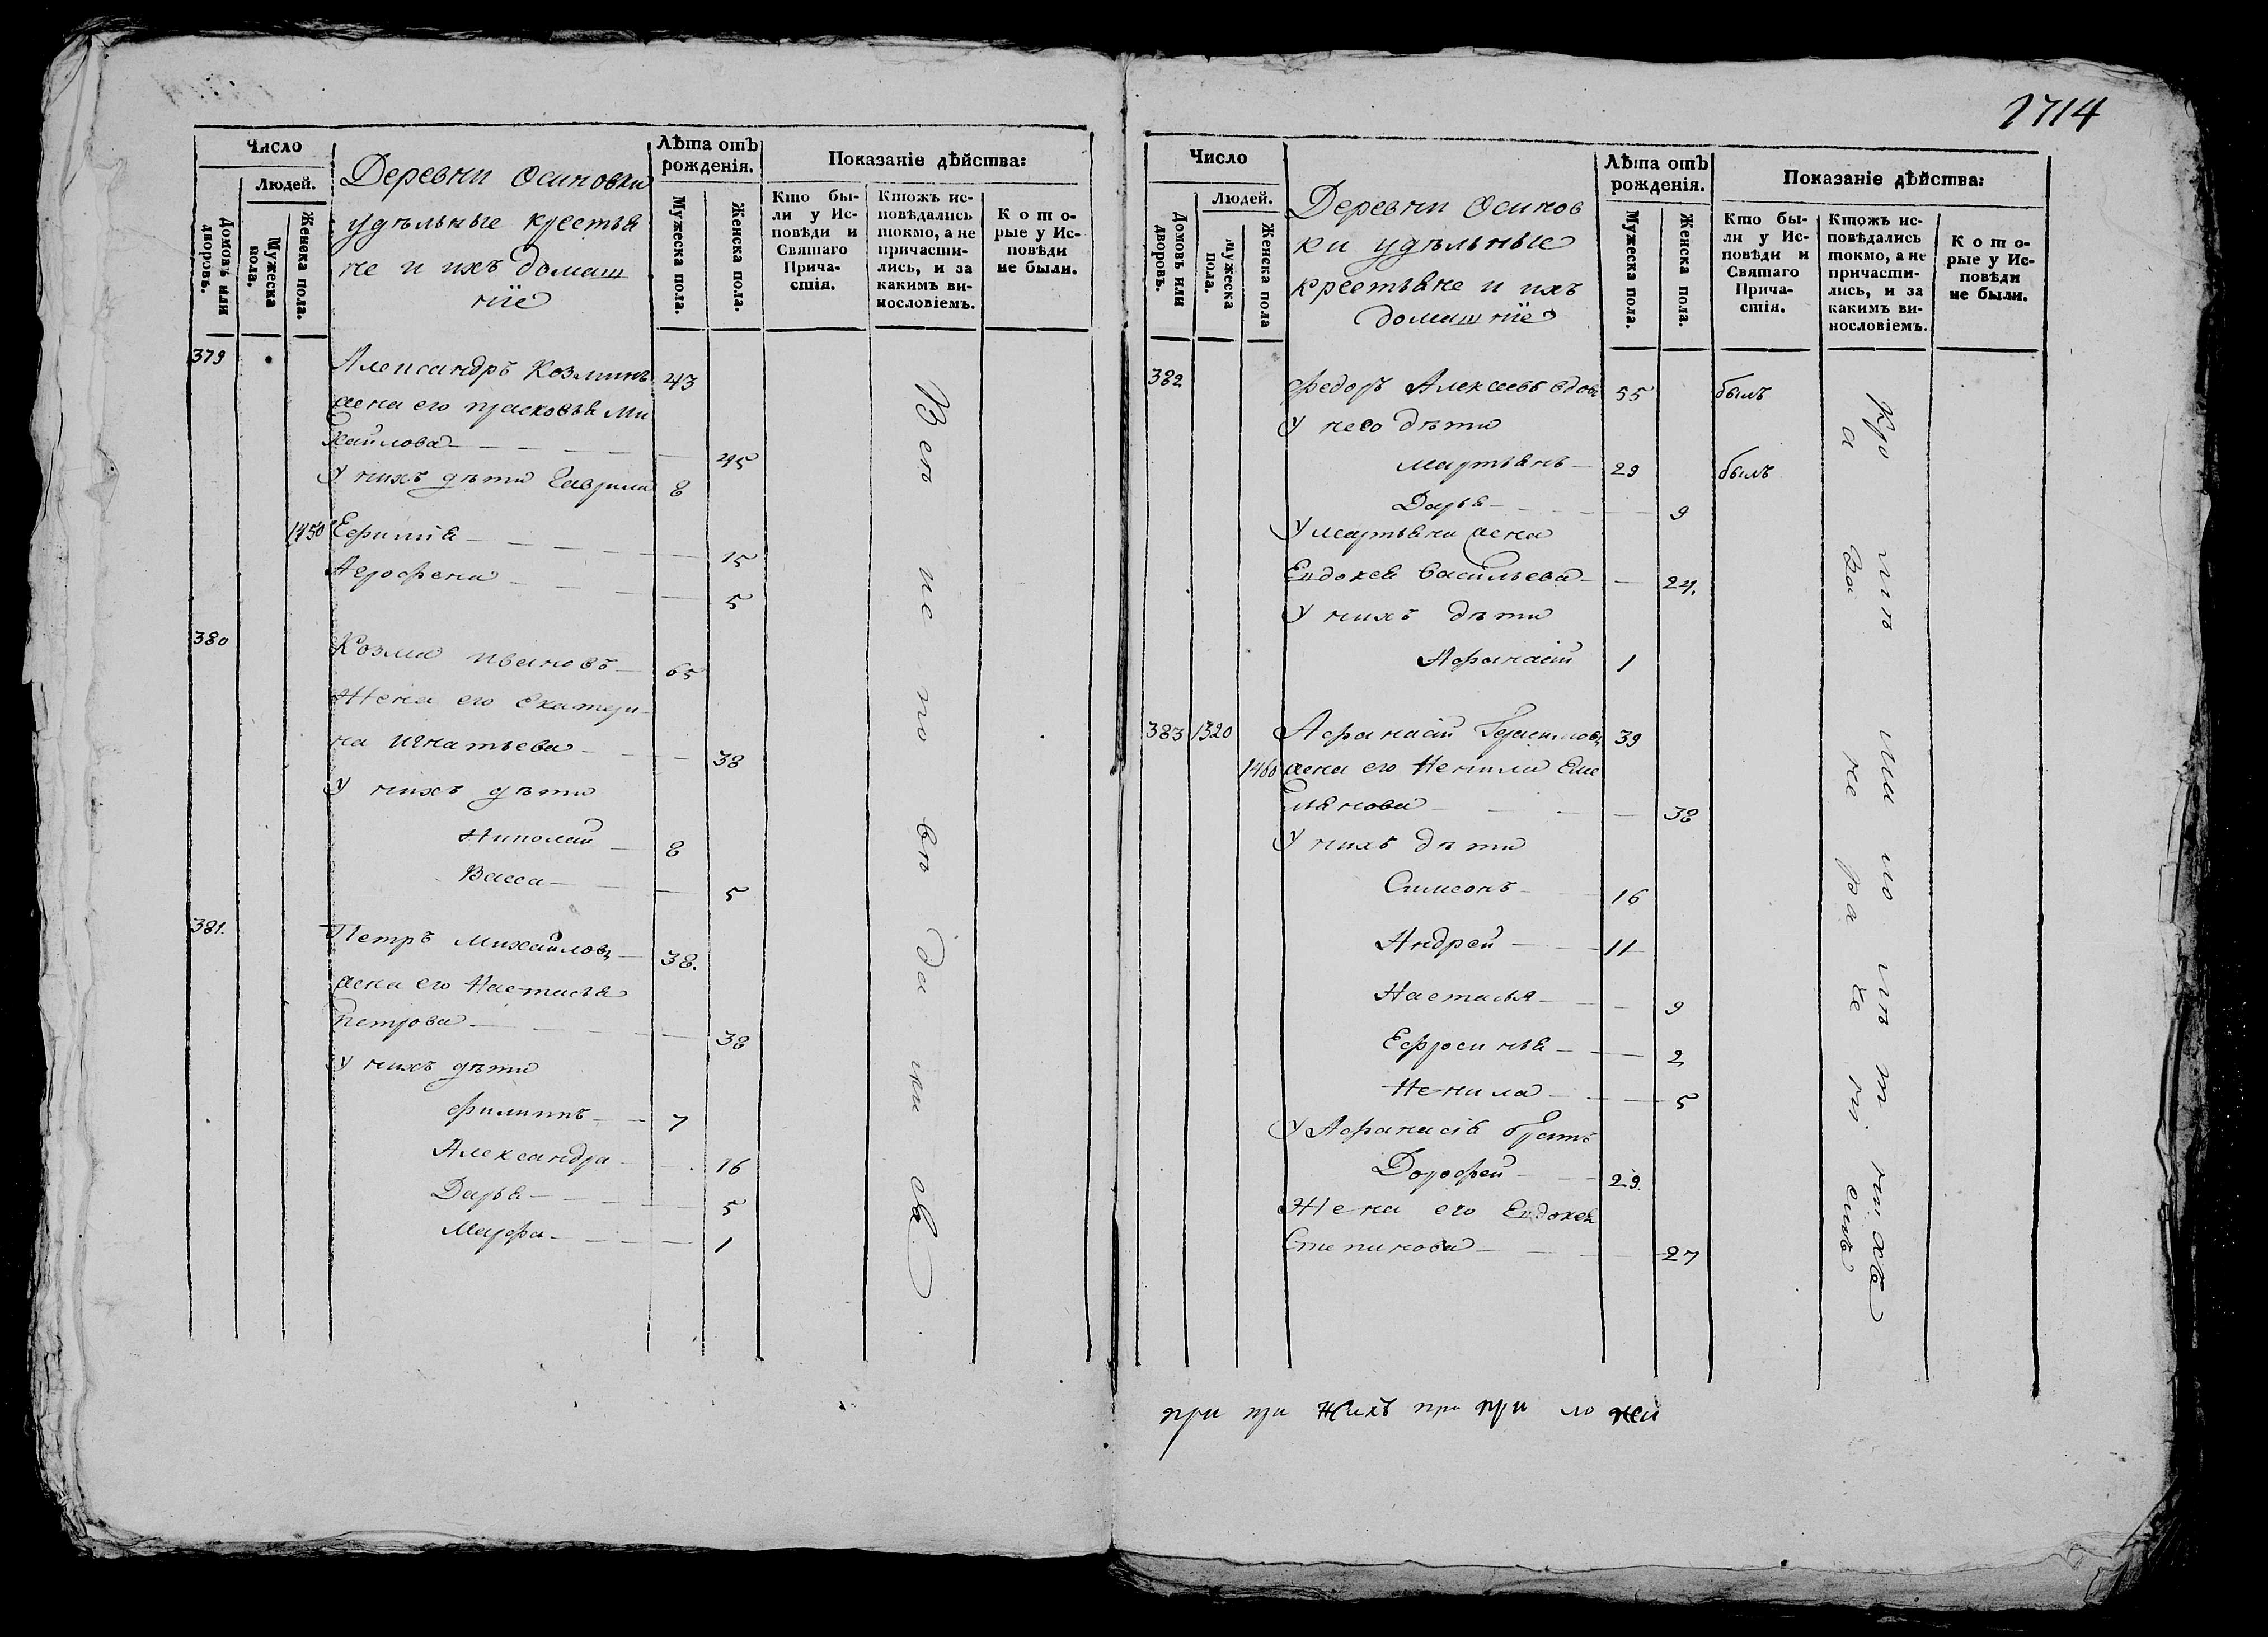 1714
Число
Людей.
Домовъ или дворовъ.
Мужеска пола.
Женска пола.
Деревни Осиновки
удѣльные крестья
не и ихъ домаш
ніе
Лѣта отъ
рожденія.
Мужеска пола.
Женска пола.
Показаніе дѣйства:
Кто бы-
ли у Ис-
повѣди и
Святаго
Прича-
стія.
Ктожъ ис-
повѣдались
токмо, а не
причасти-
лись, и за
какимъ ви-
нословіемъ.
Кото-
рые у Ис-
повѣди
не были.
379 Александръ Козминъ 43
жена его Прасковья Ми
хайлова 45
У нихъ дѣти Гаврила 8
1450 Ефимія 15
Агрофена 5
380 Козма Ивановъ 65
Жена его Екатери
на Игнатьева 38
У нихъ дѣти
Николай 8
Васса 5
381. Петръ Михайловъ 38.
жена его Настасья
Петрова 38
У нихъ дѣти
Филиппъ 7
Александра 16
Дарья 5
Марфа 1
Число
Людей.
Домовъ или дворовъ.
Мужеска пола.
Женска пола
Деревни Осинов
ки удѣльные
крестьяне и ихъ
домашніе
Лѣта отъ
рожденія.
Мужеска пола.
Женска пола.
Показаніе дѣйства:
Кто бы-
ли у Ис-
повѣди и
Святаго
Прича-
стія.
Ктожъ ис-
повѣдались
токмо, а не
причасти-
лись, и за
какимъ ви-
нословіемъ.
Кото-
рые у Ис-
повѣди
не были.
382 Федоръ Алексеевъ вдовъ 55 былъ
У него дѣти
Мартьянъ 29 былъ
Дарья 9
У Мартьяна жена
Евдокея Васильева 24.
У нихъ дѣти
Афанасій 1
383 1320 Афанасій Герасимовъ 39
1460 жена его Ненила Еме
льянова 38
У нихъ дѣти
Симеонъ 16
Андрей 11
Настасья 9
Ефросинья 2
Ненила 5
У Афанасія братъ
Дорофей 29.
Жена его Евдокея
Степанова 27
при при нихъ при при ло